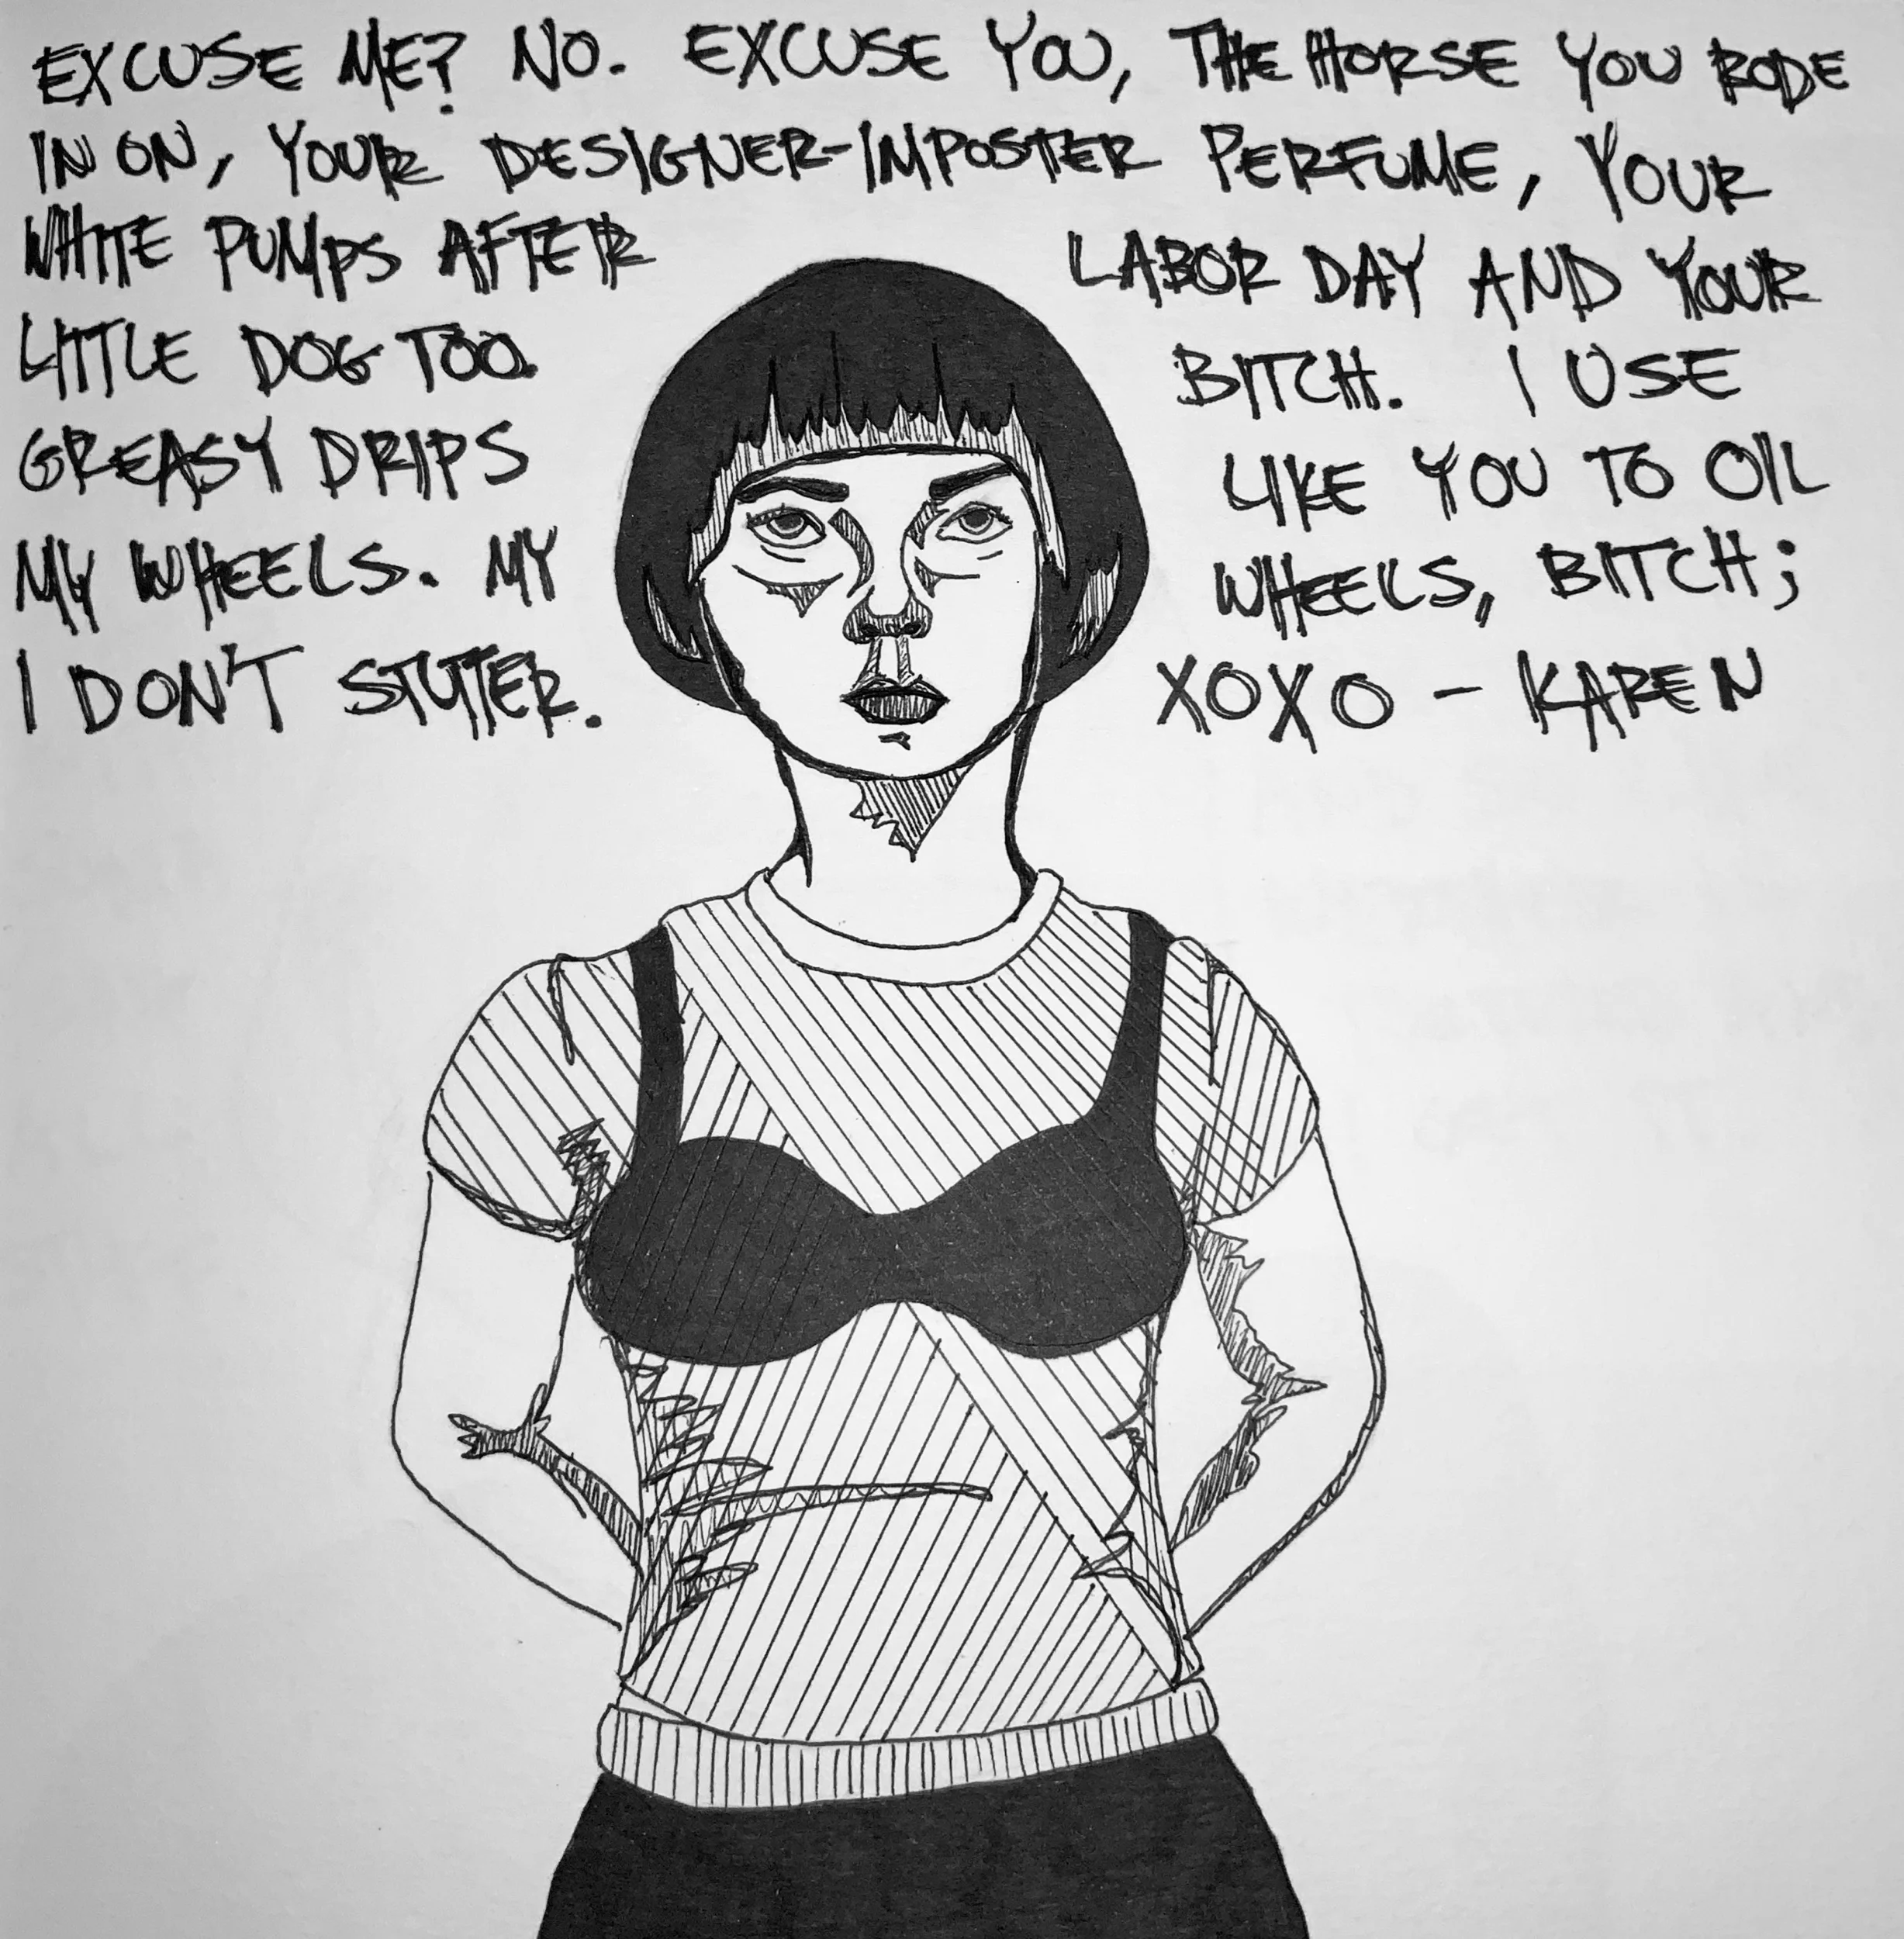 EXCUSE ME? NO. EXCUSE YOU, THE HORSE YOU RODE
IN ON, YOUR DESIGNER-IMPOSTER PERFUME, YOUR
WHITE PUMPS AFTER LABOR DAY AND YOUR
LITTLE DOG TOO BITCH. I USE
GREASY DRIPS LIKE YOU TO OIL
MY WHEELS. MY WHEELS, BITCH;
I DON'T STUTTER. XOXO - KAREN